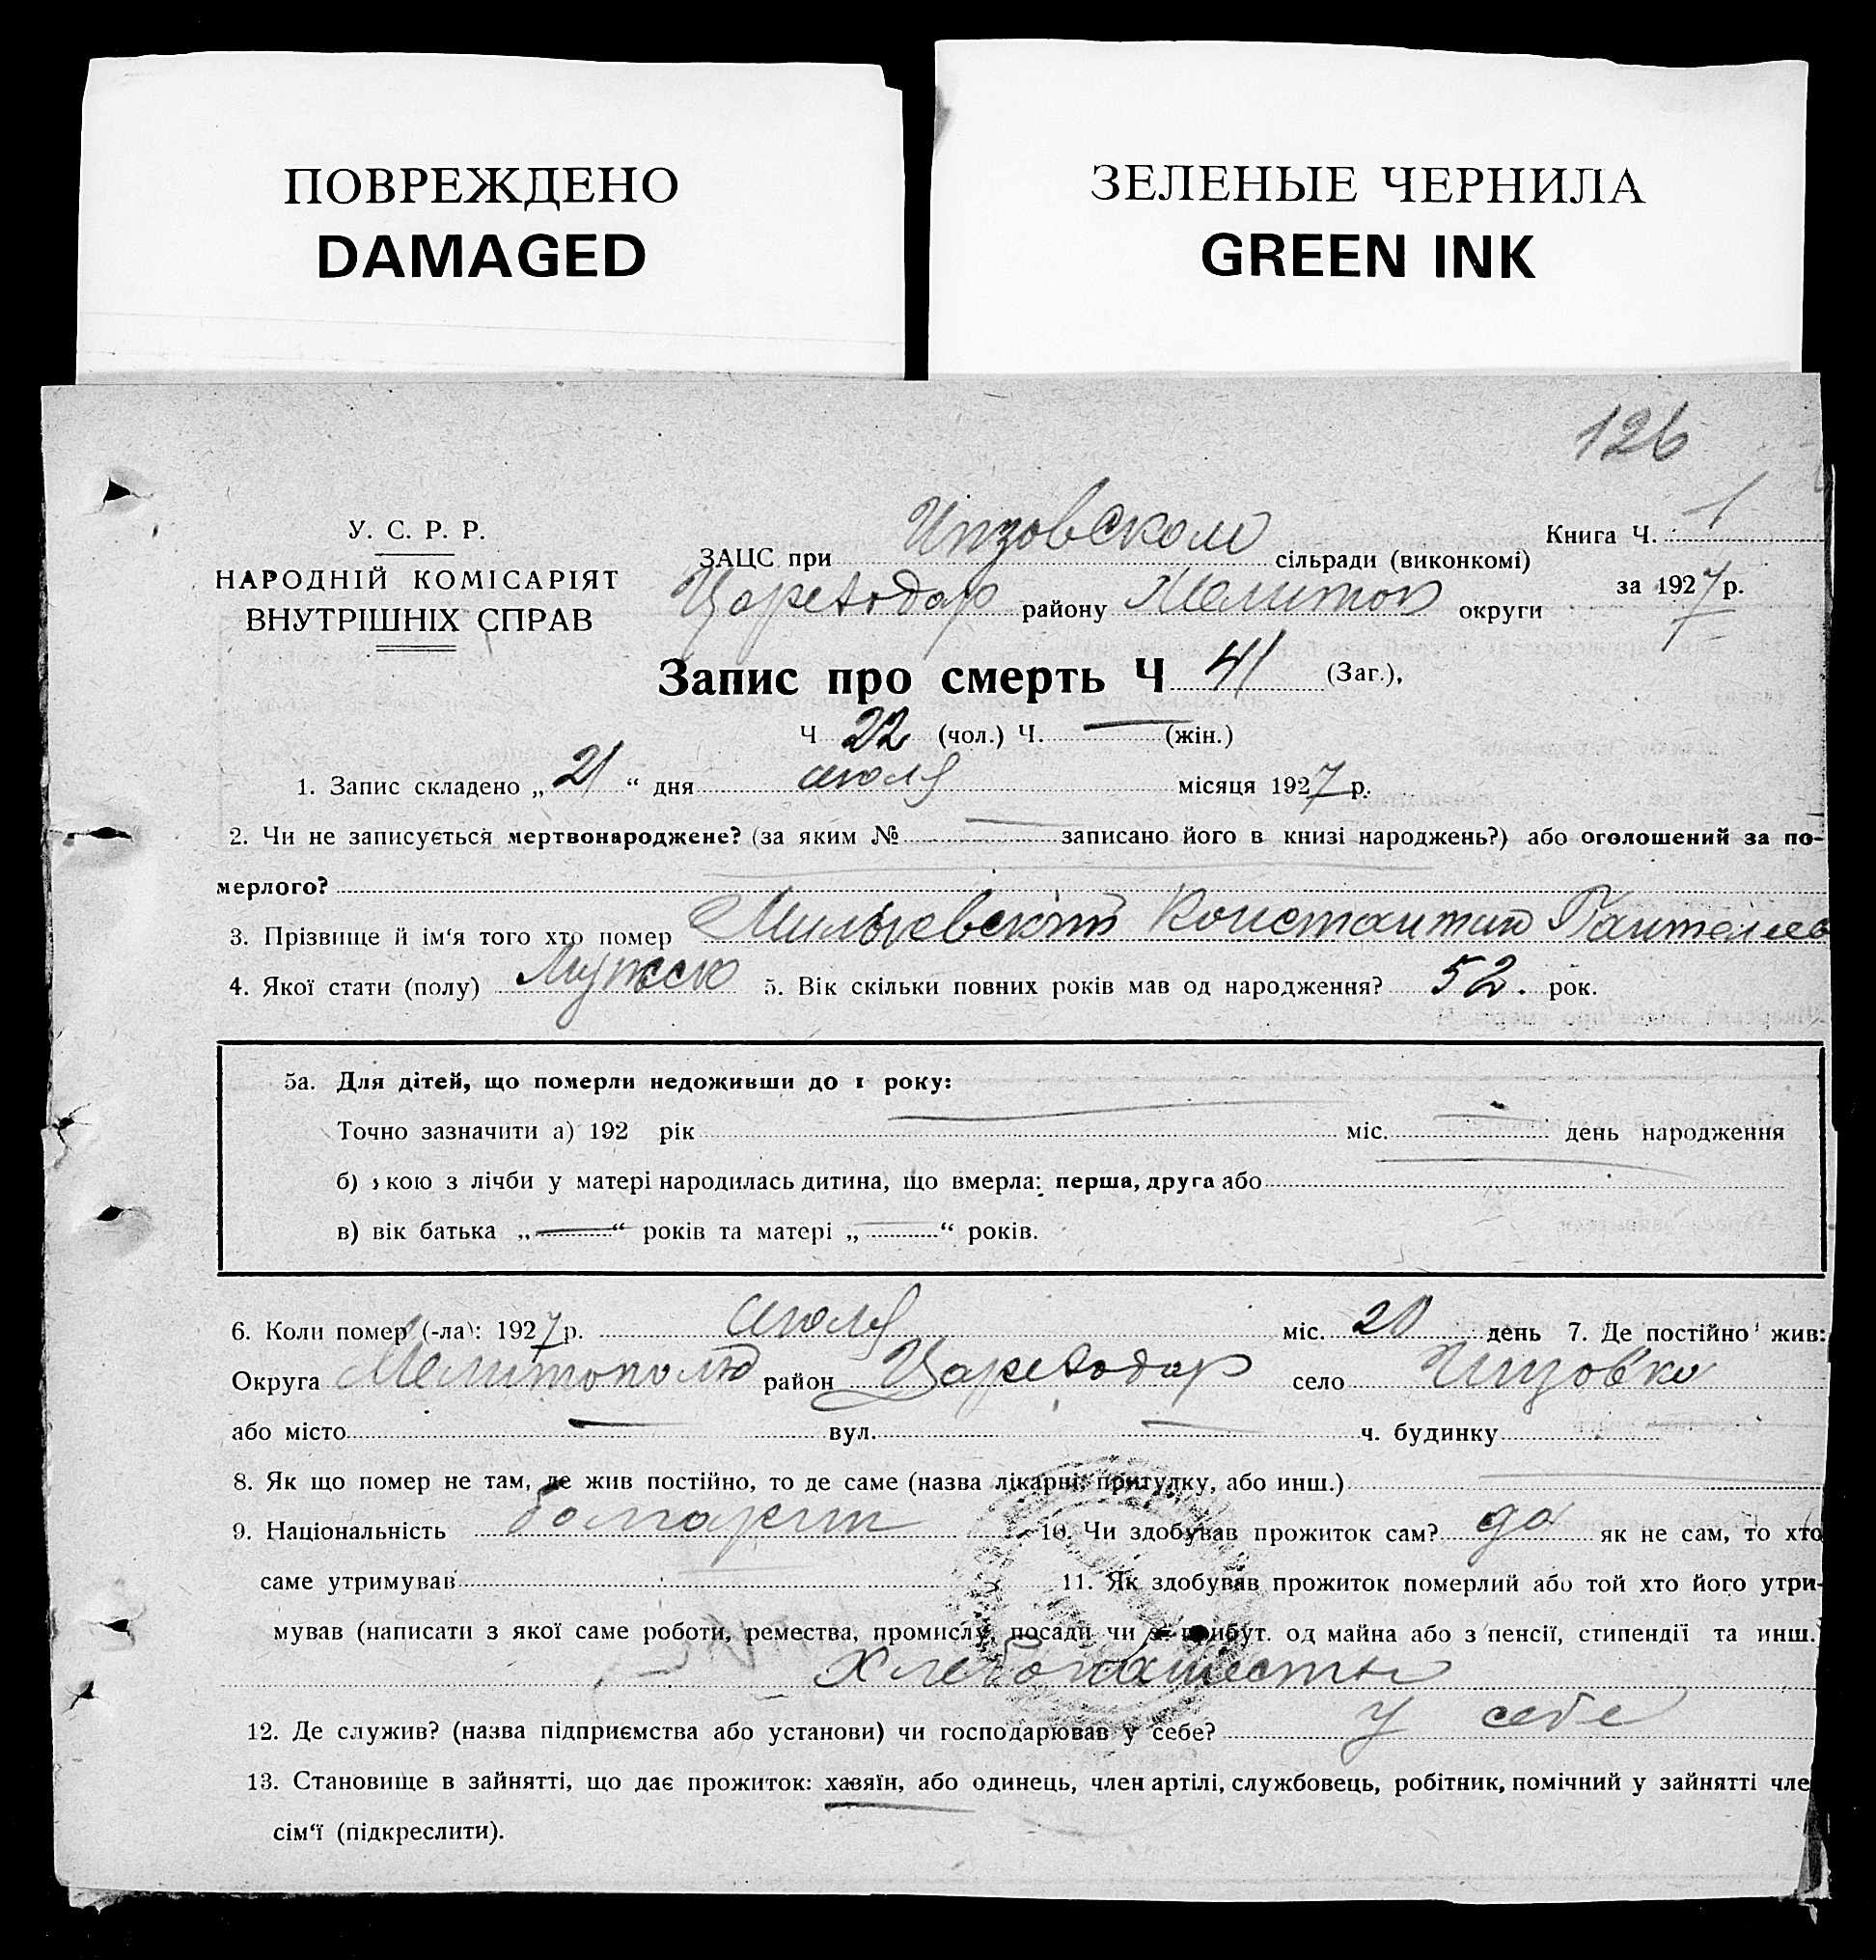 ПОВРЕЖДЕНО
DAMAGED
ЗЕЛЕНЫЕ ЧЕРНИЛА
GREEN INK
126
У. С. Р. Р.
НАРОДНІЙ КОМІСАРІЯТ
ВНУТРІШНІХ СПРАВ
ЗАЦС при сільради (виконкомі)
Книга Ч. 1
району Мелитоп округи
за 1927 р.
Запис про смерть Ч 41 (Заг.),
Ч 22 (чол.) Ч. — (жін.)
1. Запис складено „ 21 “ дня июля місяця 1927 р.
2. Чи не записується мертвонароджене? (за яким № — записано його в книзі народжень?) або оголошений за по-
мерлого?
3. Прізвище й ім‘я того хто помер Константин Пантелеев
4. Якої стати (полу) 5. Вік скільки повних років мав од народження? 52. рок.
5а. Для дітей, що померли недоживши до 1 року:
Точно зазначити а) 192 рік — міс. — день народження
б) якою з лічби у матері народилась дитина, що вмерла: перша, друга або
в) вік батька „ — “ років та матері „ — “ років.
6. Коли помер (-ла): 1927 р. июля міс. 20 день 7. Де постійно жив:
Округа Мелитополь район село
або місто — вул. — ч. будинку
8. Як що помер не там, де жив постійно, то де саме (назва лікарні, притулку, або инш.) —
9. Національність болгарин 10. Чи здобував прожиток сам? да як не сам, то хто
саме утримував 11. Як здобував прожиток померлий або той хто його утри-
мував (написати з якої саме роботи, ремества, промислу, посади чи з прибут. од майна або з пенсії, стипендії та инш.)
12. Де служив? (назва підприємства або установи) чи господарював у себе? у себе
13. Становище в зайнятті, що дає прожиток: хазяїн, або одинець, член артілі, службовець, робітник, помічний у зайнятті чле
сім‘ї (підкреслити).